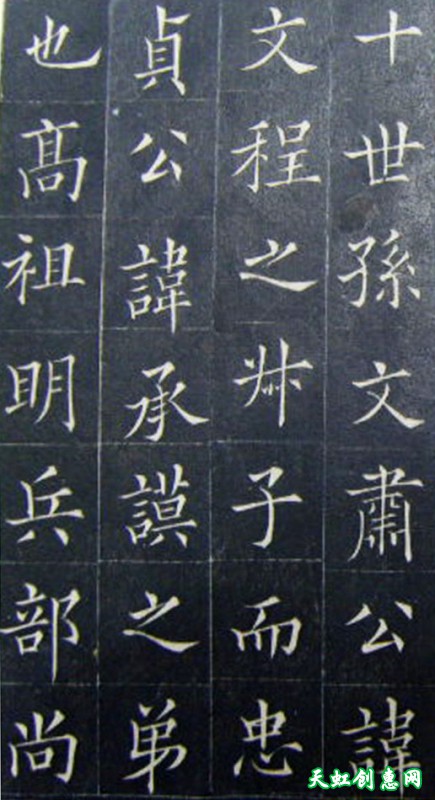 十世孫文肅公諱
文程之叔子而忠
貞公諱承謨之弟
也髙祖明兵部尚
天虹创惠网